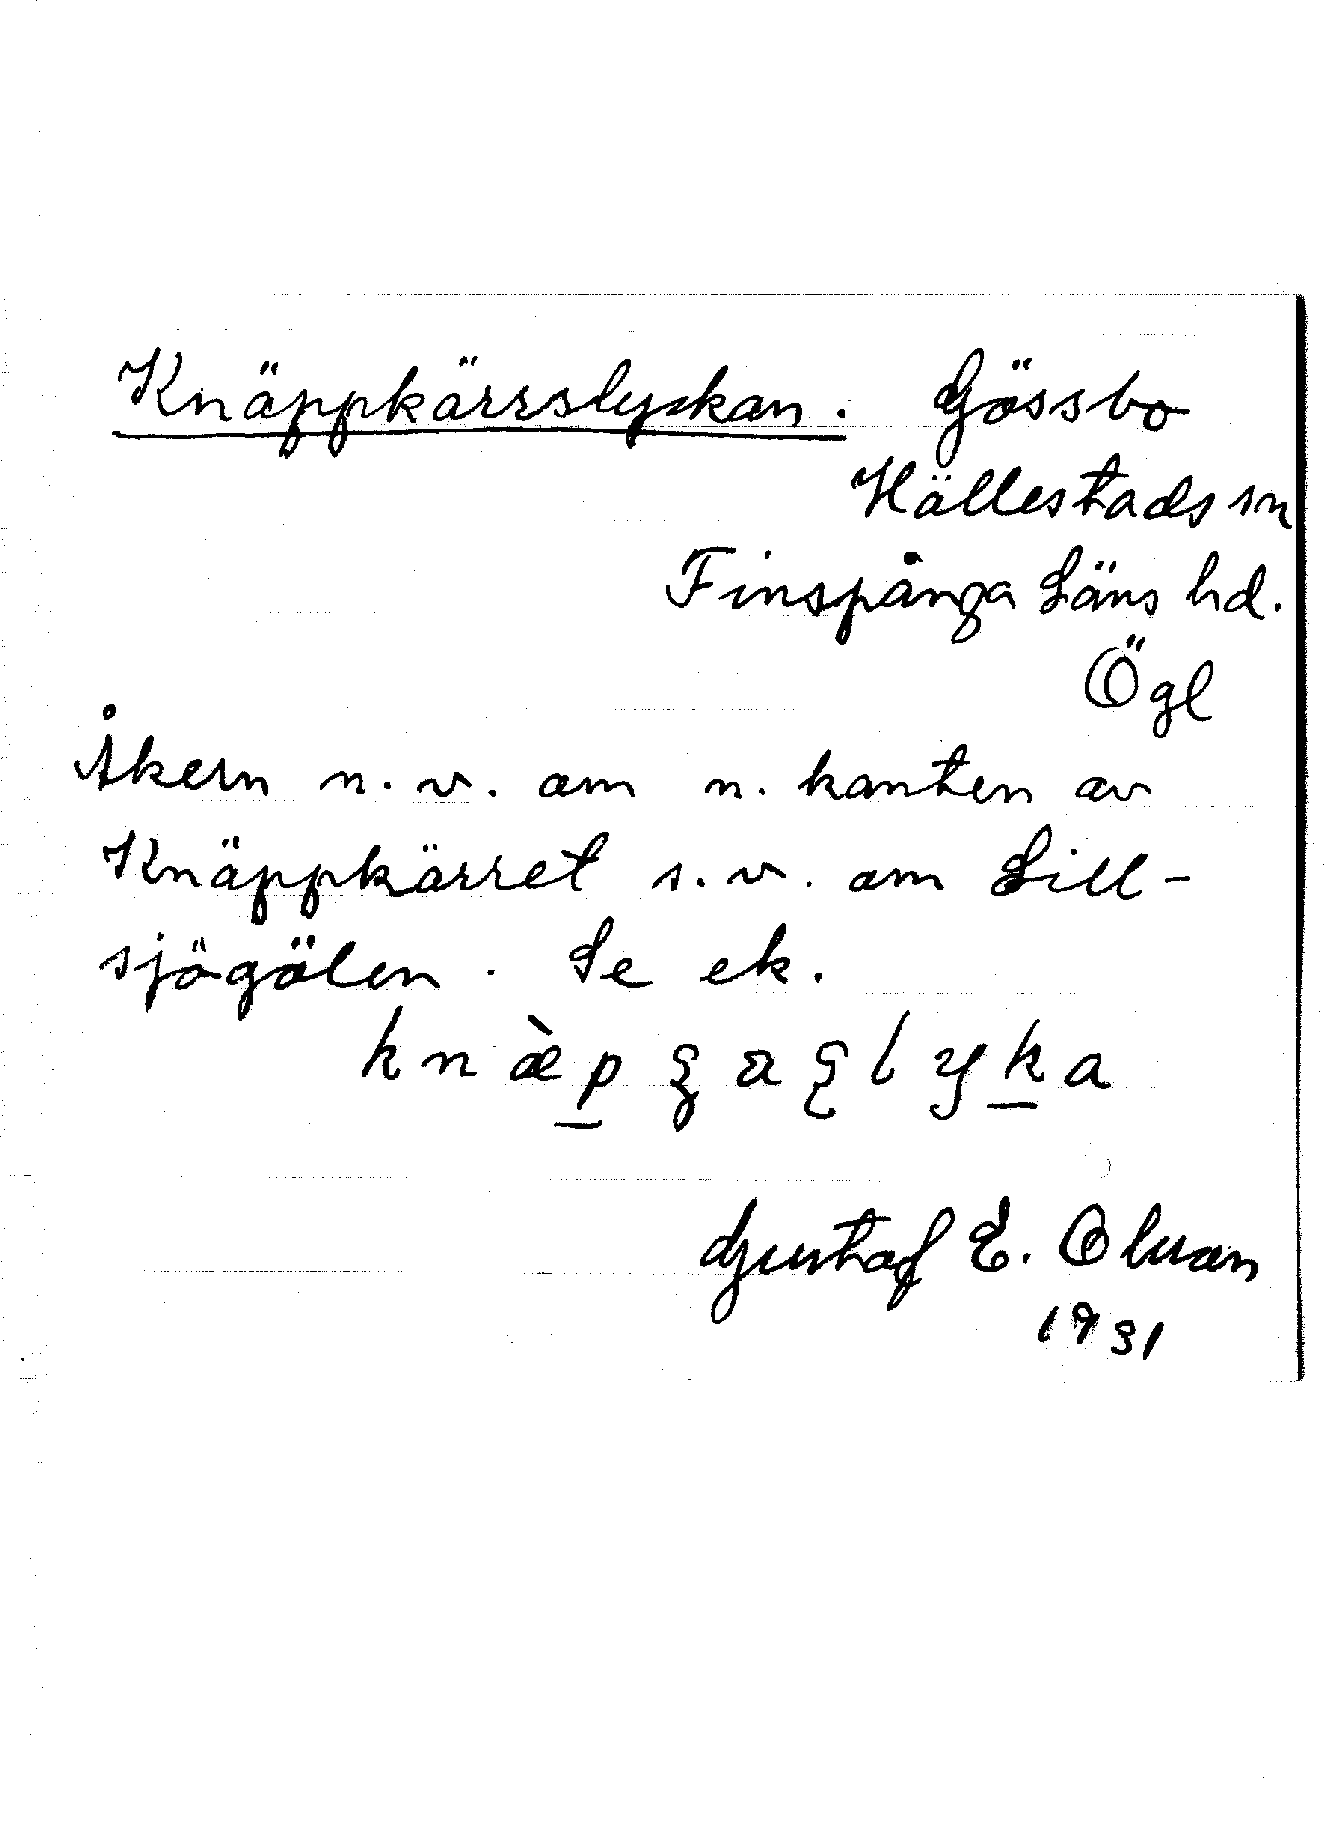 Knäppkärrslyckan. Gössbo
Hällestads sn
Finspånga Läns hd.
Ögl
Åkern n.v. om n. kanten av
Knäppkärret s.v. om Lill-
sjögölen. Se ek.
Gustaf E. Olsson
1931